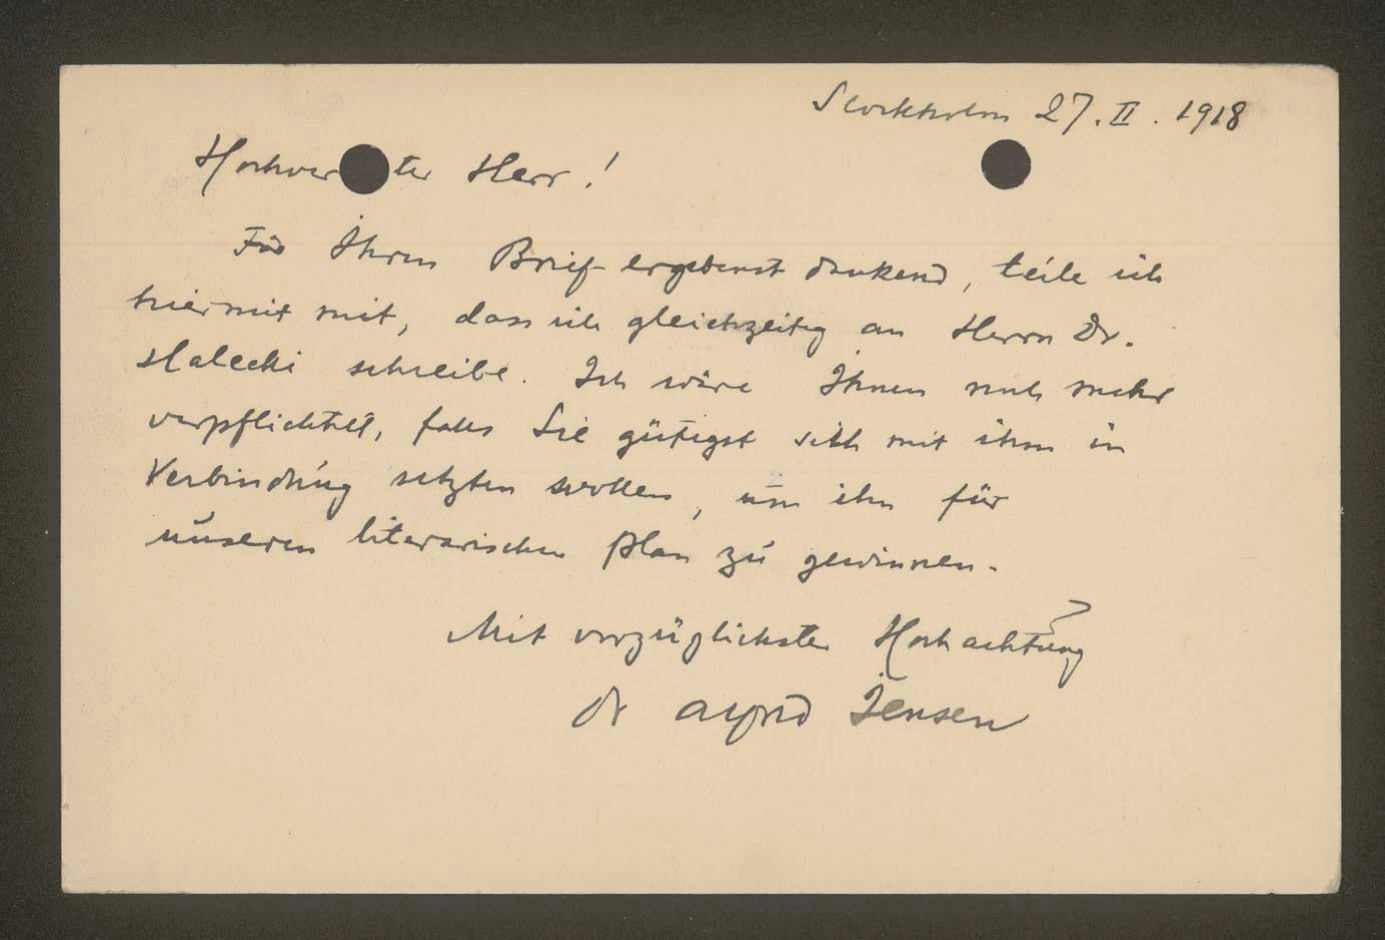 Stockholm 27. II. 1918
Hochver ter Herr!
Für Ihren Brief ergebenst dankend, teile ich
hiermit mit, dass ich gleichzeitig an Herrn Dr.
Halecki schreibe. Ich wäre Ihnen noch mehr
verpflichtet, falls Sie gütigst sich mit ihm in
Verbindung setzten wollen, um ihn für
unseren literarischen Plan zu gewinnen.
Mit vorzüglichster Hochachtung
Dr Alfred Jensen